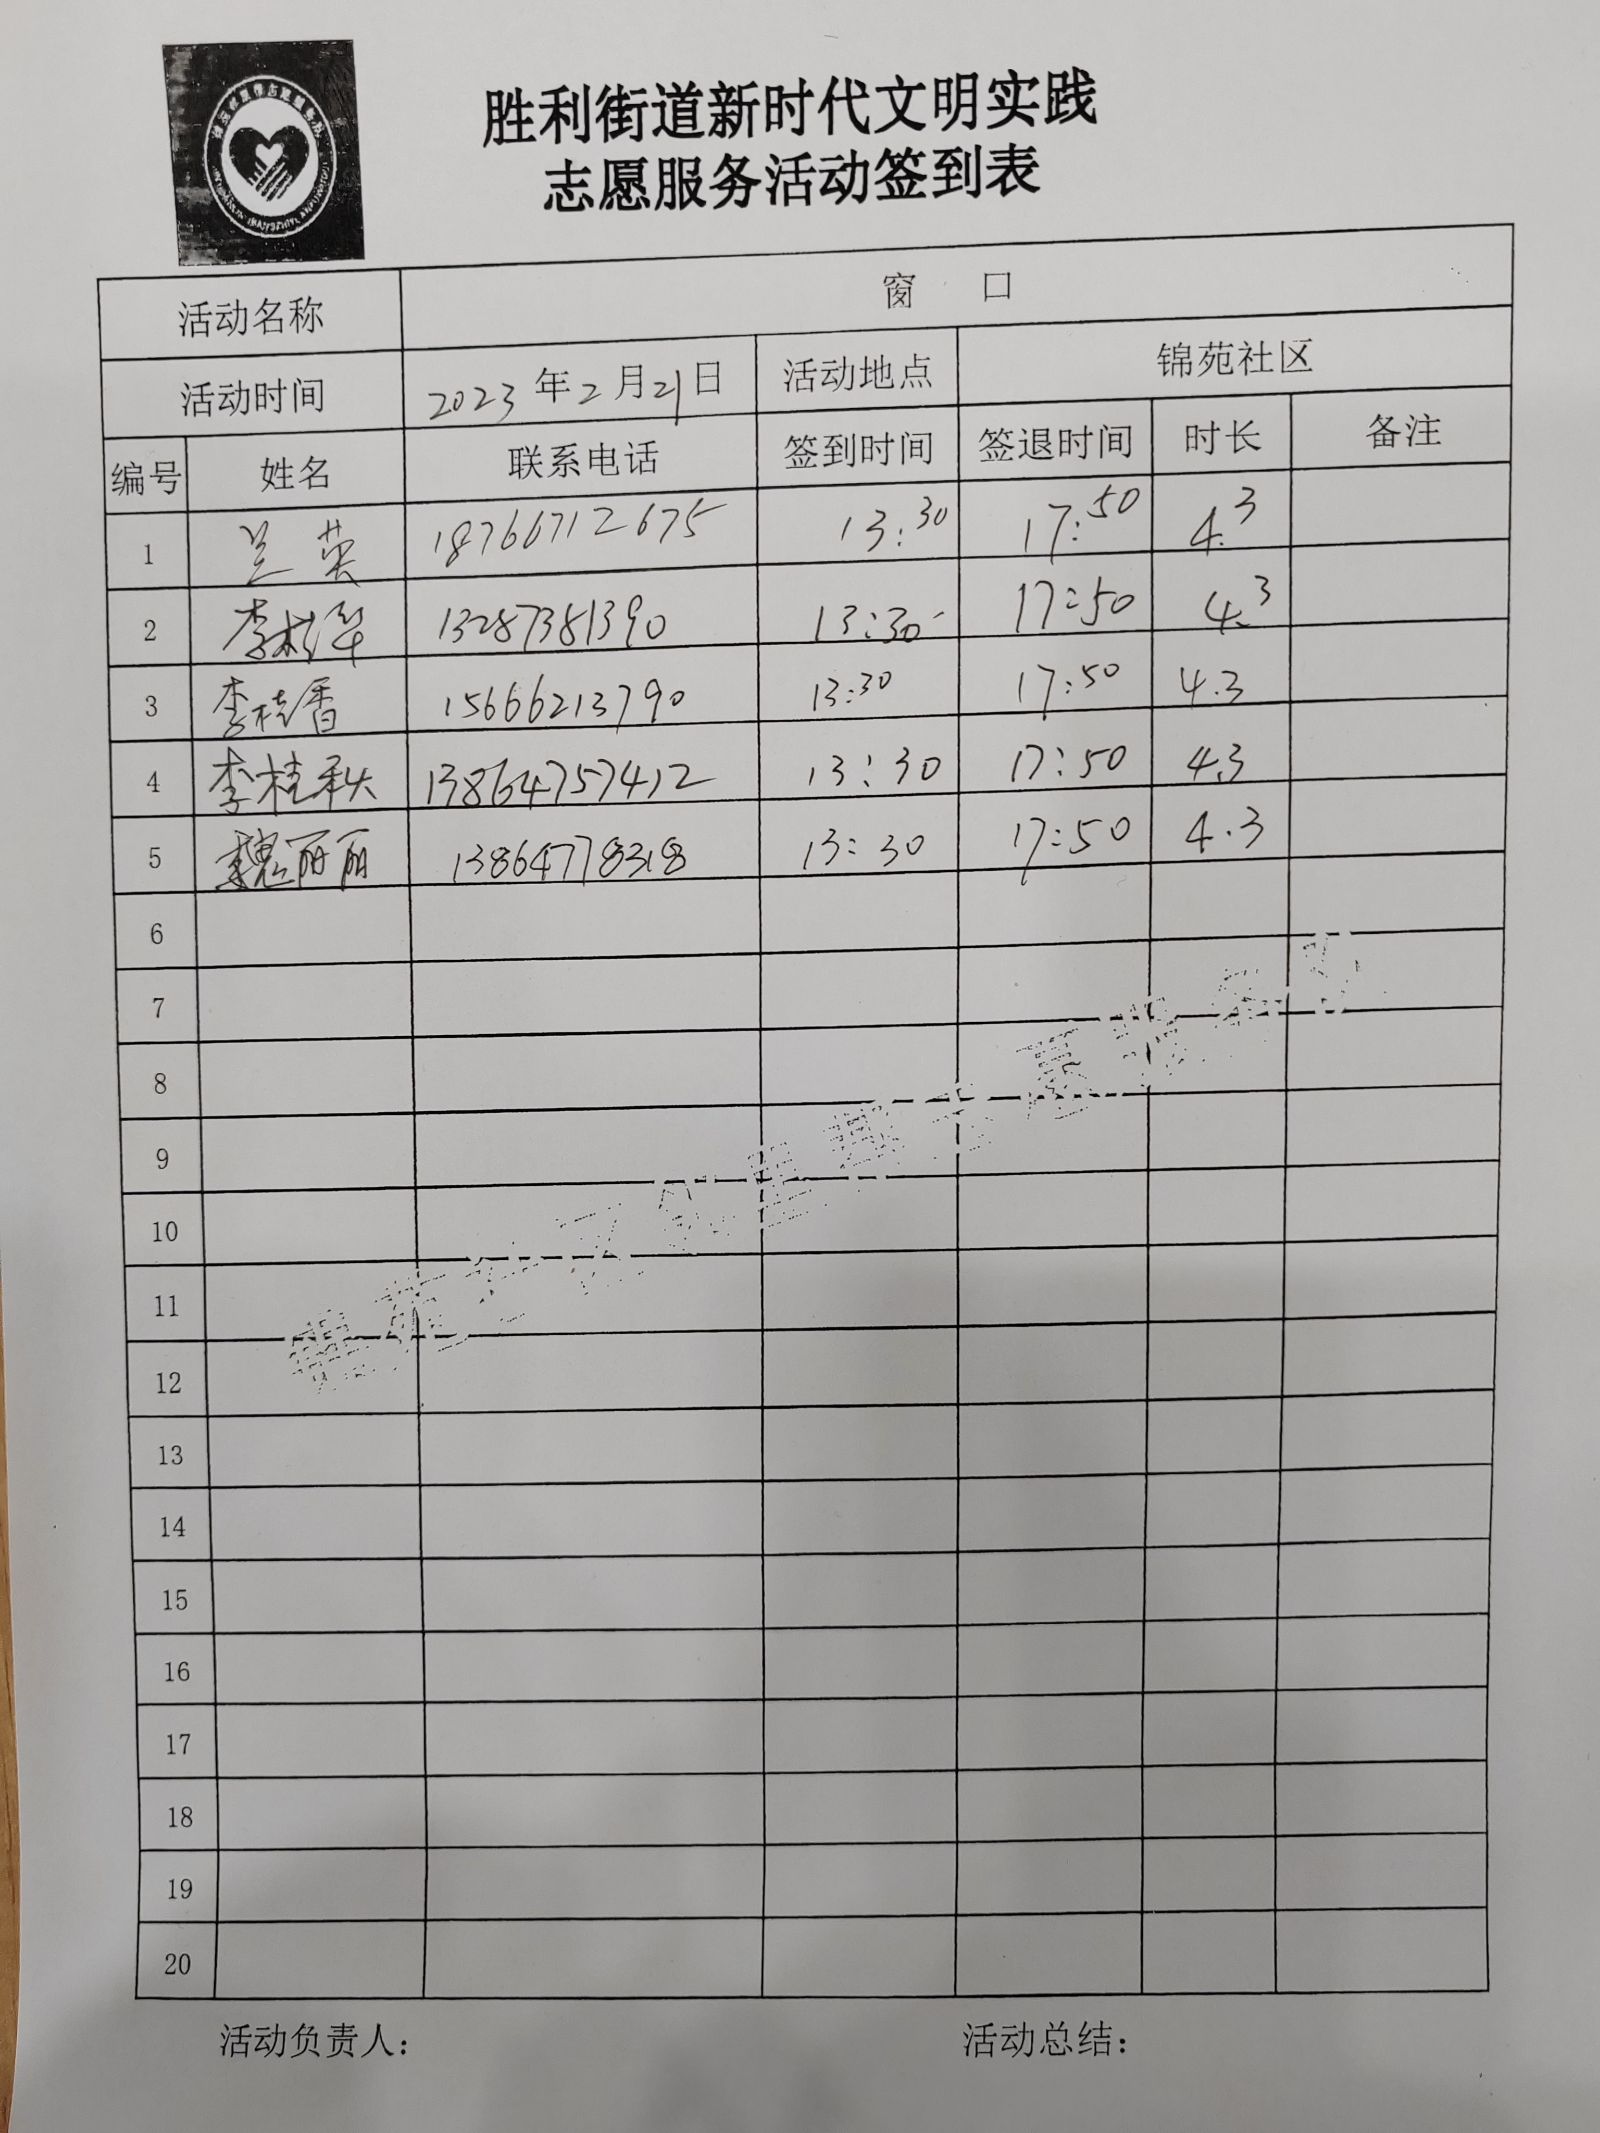 胜利街道新时代文明实践
志愿服务活动签到表
活动名称 窗 口
活动时间 2023年2月21日 活动地点 锦苑社区
编号 姓名 联系电话 签到时间 签退时间 时长 备注
1 兰英 18766712675 13:30 17:50 4.3
2 李桂华 13287381390 13:30 17:50 4.3
3 李桂香 15666213790 13:30 17:50 4.3
4 李桂秋 13864757412 13:30 17:50 4.3
5 魏丽丽 13864778318 13:30 17:50 4.3
6
7
8
9
10
11
12
13
14
15
16
17
18
19
20
活动负责人: 活动总结: